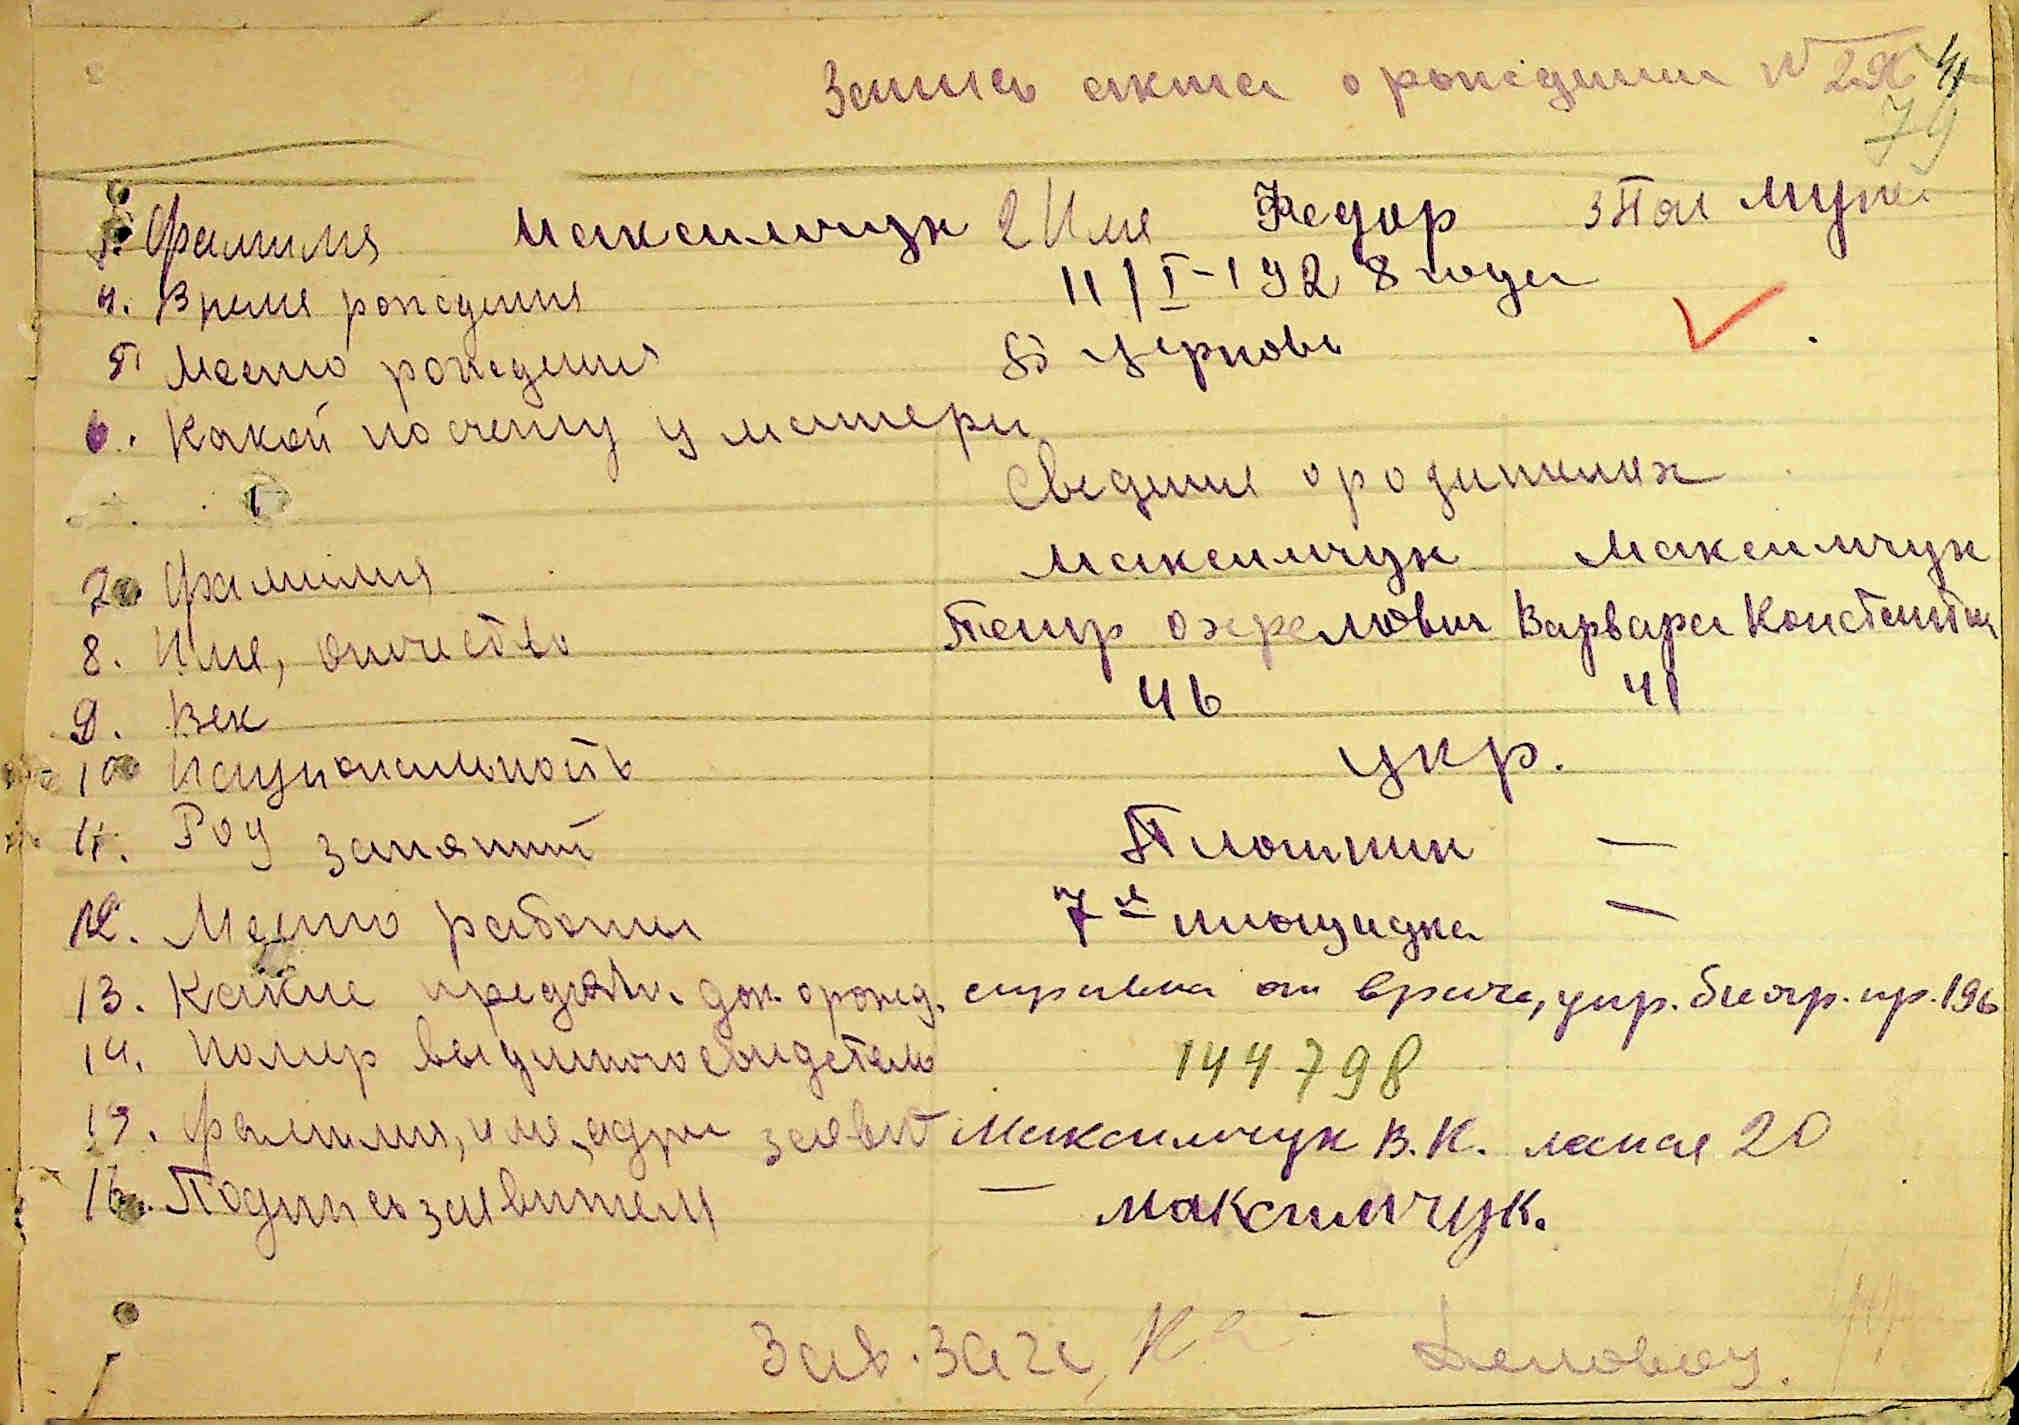 Запись акта о рождении №
79
1. Фамилия Максимчук 2 Имя Федор 3 Пол муж.
4. Время рождения 11/I-1928 года
5 Место рождения Б Церковь
6. Какой по счету у матери
Сведения о родителях
7. Фамилия Максимчук Максимчук
8. Имя, отчество Петр Варвара Констант
9. Век 46 41
10 Национальность укр.
11. Род занятий Плотник —
12. Место работы 7я площадка —
13. Какие док. о рожд. справка от врача, пр. 196
14. Номер выданного свидетель 144798
15. Фамилия, имя, адрес заявит Максимчук В.К. 20
16. Подпись заявителя — Максимчук.
Зав. Загс